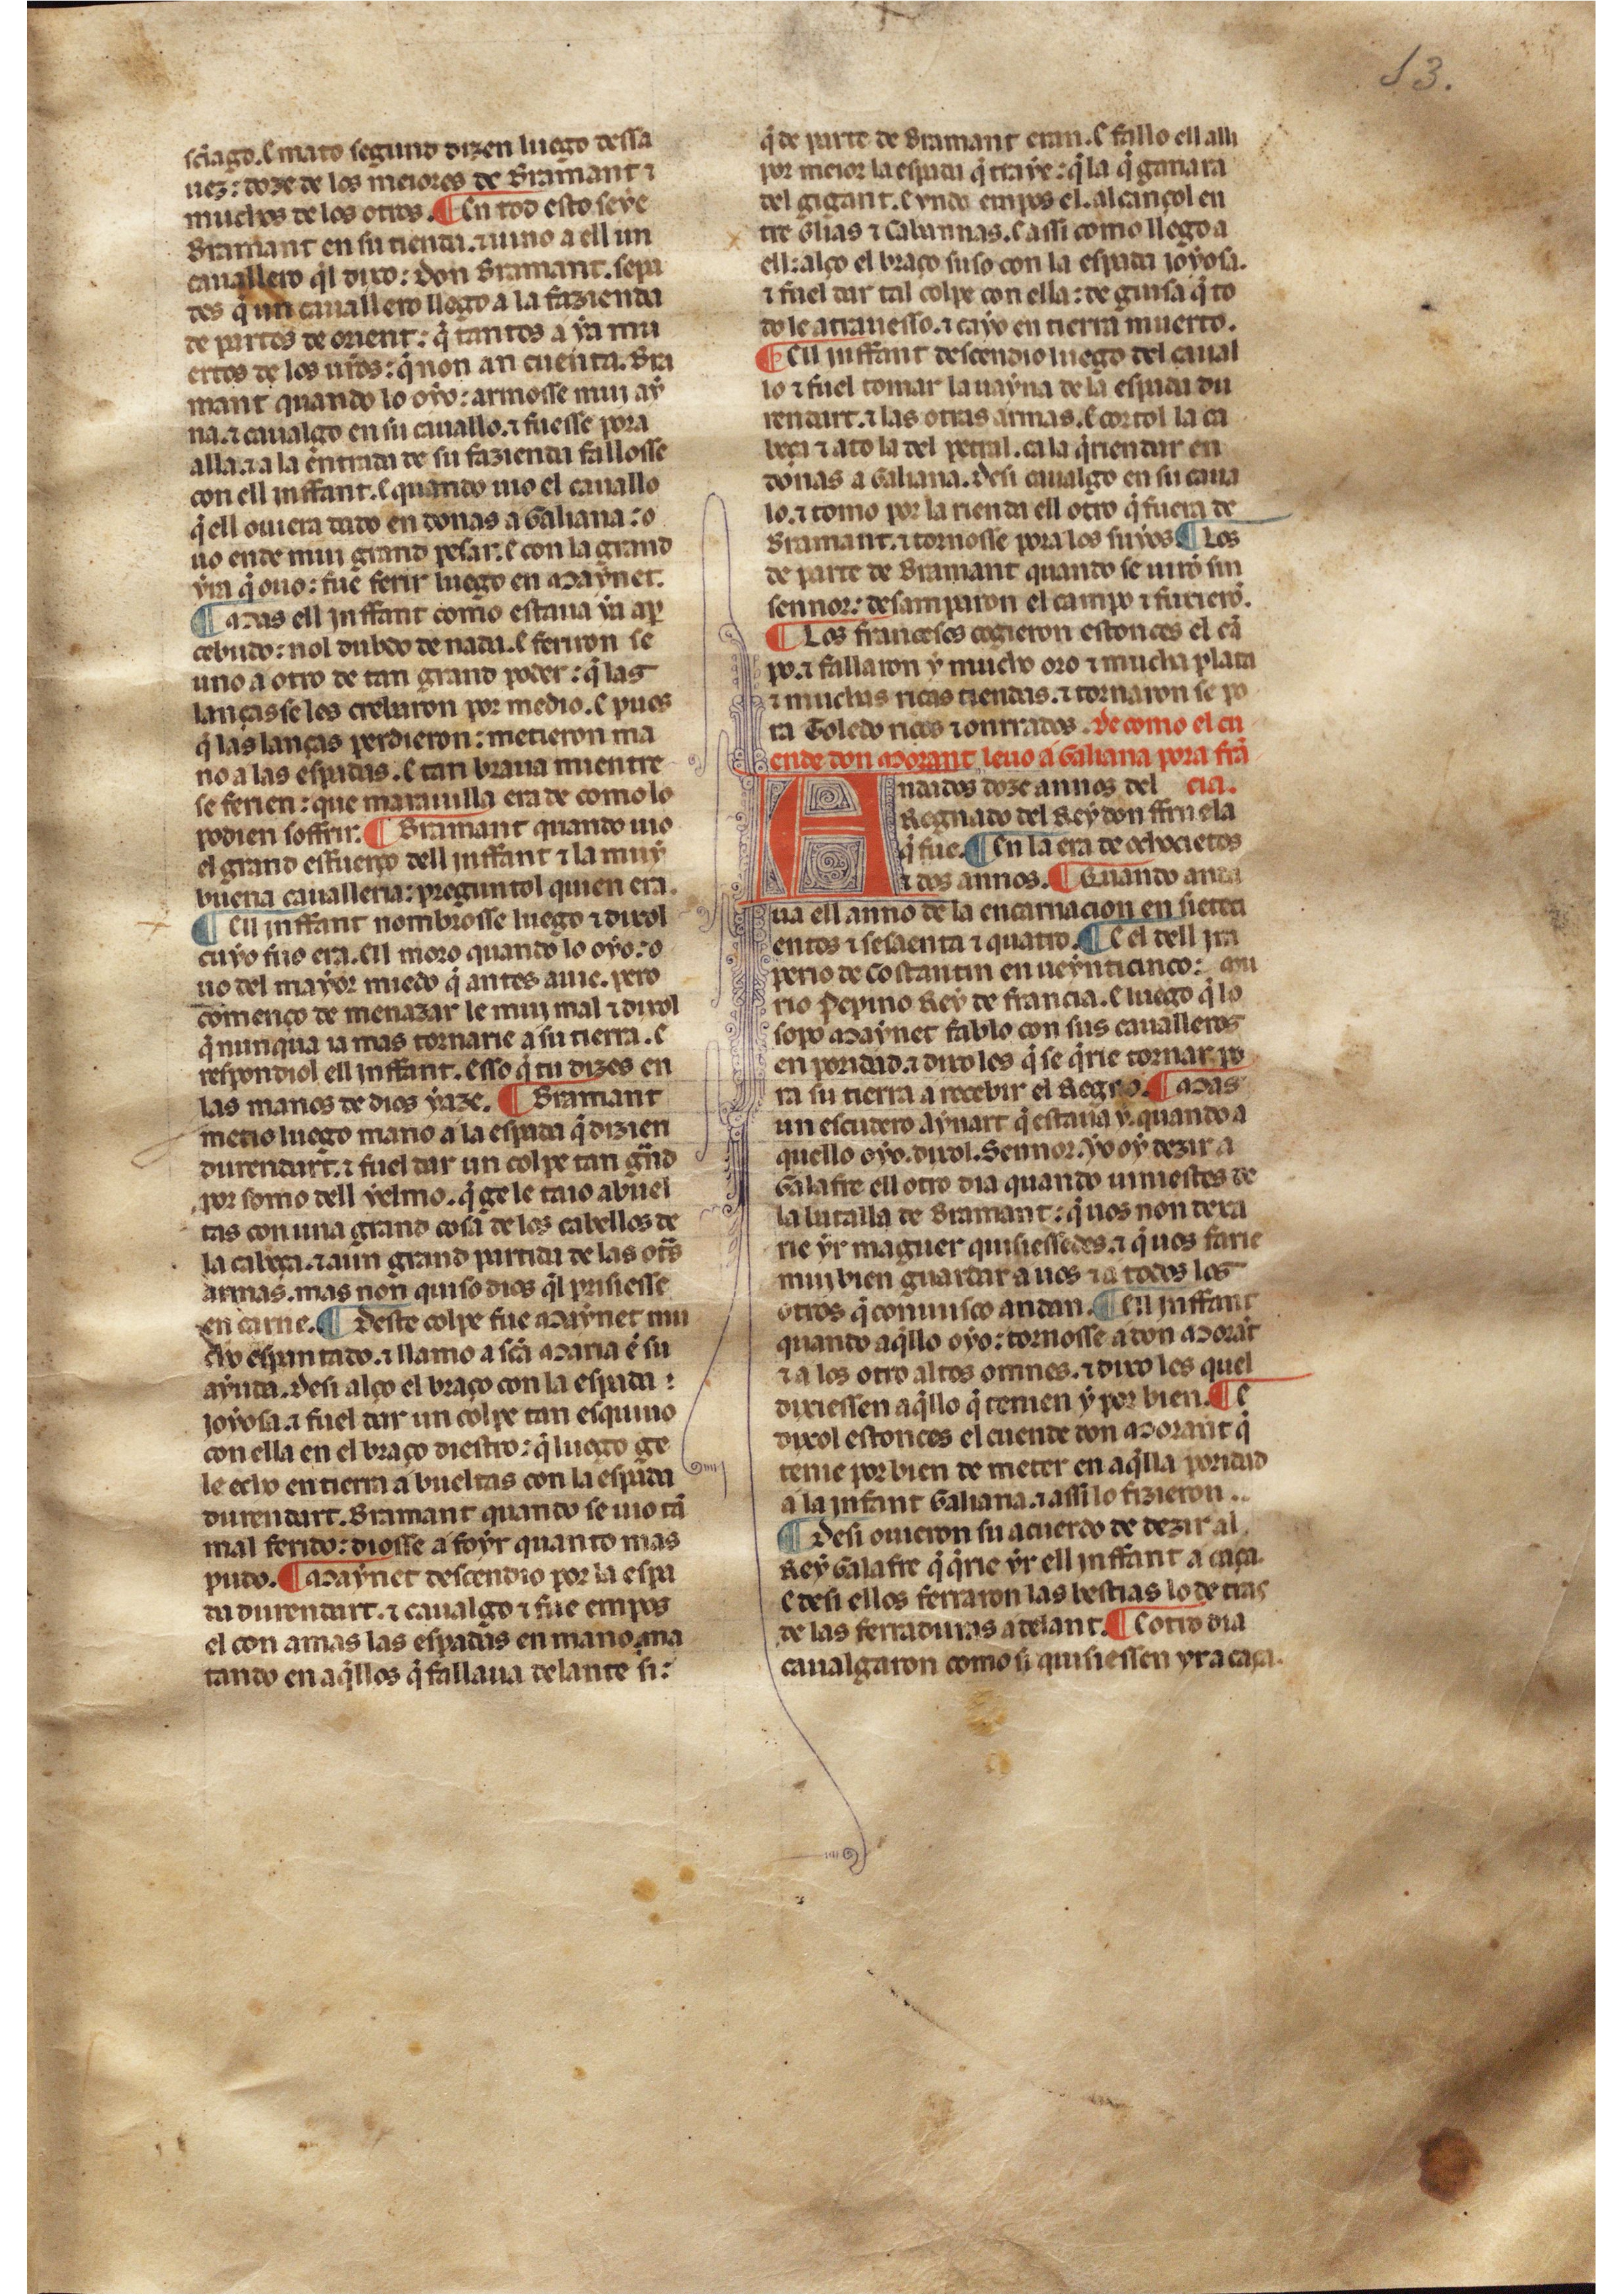 13.
sc̃iago. E mato segund dizen luego dessa
uez: doze de los meiores de Bramant ⁊
muchos de los otros. ¶ En tod esto seye
Bramant en su tienda. ⁊ uino a ell un
cauallero q̃l dixo: Don Bramant. sepa
des q̃ un cauallero llego a la fazienda
de partes de orient: q̃ tantos a ya mu
ertos de los ur̃os: q̃ non an cuenta. Bra
mant quando lo oyo: armosse muy ay
na. ⁊ caualgo en su cauallo. ⁊ fuesse pora
alla. ⁊ a la entrada de su fazienda fallosse
con ell inffant. E quando uio el cauallo
q̃ ell ouiera dado en donas a Galiana: o
uo ende muy grand pesar. E con la grand
yra q̃ ouo: fue ferir luego en Maynet.
¶ Mas ell inffant como estaua ya aper
cebudo: nol dubdo de nada. E firiron se
uno a otro de tan grand poder: q̃ las
lanças se les crebaron por medio. E pues
q̃ las lanças perdieron: metieron ma
no a las espadas. E tan braua mientre
se ferien: que marauilla era de como lo
podien soffrir. ¶ Bramant quando uio
el grand esfuerço dell inffant ⁊ la muy
buena caualleria: preguntol quien era.
¶ Ell inffant nombrosse luego ⁊ dixol
cuyo fijo era. Ell moro quando lo oyo: o
uo del mayor miedo q̃ antes auie. pero
començo de menazar le muy mal ⁊ dixol
q̃ nunqua ia mas tornarie a su tierra. E
respondiol ell inffant. Esso q̃ tu dizes en
las manos de dios yaze. ¶ Bramant
metio luego mano a la espada q̃ dizien
durendart. ⁊ fuel dar un colpe tan gñd
por somo dell yelmo. q̃ ge le taio abuel
tas con una grand cosa de los cabellos de
la cabeça. ⁊ aun grand partida de las otr̃s
armas. mas non quiso dios q̃l prisiesse
en carne. ¶ Deste colpe fue Maynet mu
cho espantado. ⁊ llamo a sc̃a Maria ẽ su
ayuda. Desi alço el braço con la espada:
joyosa. ⁊ fuel dar un colpe tan esquiuo
con ella en el braço diestro: q̃ luego ge
le echo en tierra a bueltas con la espada
durendart. Bramant quando se uio tã
mal ferido: diosse a foyr quanto mas
pudo. ¶ Maynet descendio por la espa
da durendart. ⁊ caualgo ⁊ fue empos
el con amas las espadas en mano. ma
tando en aq̃llos q̃ fallaua delante si:
q̃ de parte de Bramant eran. E fallo ell alli
por meior la espada q̃ traye: q̃ la q̃ ganara
del gigant. E yndo empos el. alcançol en
tre Olias ⁊ Cabannas. E assi como llego a
ell: alço el braço suso con la espada joyosa.
⁊ fuel dar tal colpe con ella: de guisa q̃ to
do le atrauesso. ⁊ cayo en tierra muerto.
¶ Ell inffant descendio luego del caual
lo ⁊ fuel tomar la uayna de la espada du
rendart. ⁊ las otras armas. E cortol la ca
beça ⁊ ato la del petral. ca la q̃rien dar en
donas a Galiana. Desi caualgo en su caua
lo. ⁊ tomo por la rienda ell otro q̃ fuera de
Bramant. ⁊ tornosse pora los suyos. ¶ Los
de parte de Bramant quando se uirõ sin
sennor: desampararon el campo ⁊ fuxierõ.
¶ Los franceses cogieron estonces el cã
po. ⁊ fallaron y mucho oro ⁊ mucha plata
⁊ muchas ricas tiendas. ⁊ tornaron se po
ra Toledo ricos ⁊ onrrados. De como el cu
ende don Morant leuo a Galiana pora frã
cia.
Andados doze annos del
Regnado del Rey don ffruela
q̃ fue. ¶ En la era de ochocietos
⁊ dos annos. ¶ Quando anda
ua ell anno de la encarnacion en sieteci
entos ⁊ sesaenta ⁊ quatro. ¶ E el dell jm
perio de Costantin en ueynticinco: mu
rio Pepino Rey de francia. E luego q̃ lo
sopo Maynet fablo con sus caualleros
en poridad. ⁊ dixo les q̃ se q̃rie tornar po
ra su tierra a recebir el Regno. ¶ Mas
un escudero Aynart q̃ estaua y. quando a
quello oyo. dixol. Sennor. Yo oy dezir a
Galafre ell otro dia quando uiniestes de
la batalla de Bramant: q̃ uos non dexa
rie yr maguer quisiessedes. ⁊ q̃ uos farie
muy bien guardar a uos ⁊ a todos los
otros q̃ conuusco andan. ¶ Ell inffant
quando aq̃llo oyo: tornosse a don Morãt
⁊ a los otro altos omnes. ⁊ dixo les quel
dixiessen aq̃llo q̃ tenien y por bien. ¶ E
dixol estonces el cuende don Morant q̃
tenie por bien de meter en aq̃lla poridad
a la jnfant Galiana. ⁊ assi lo fizieron..
¶ Desi ouieron su acuerdo de dezir al
Rey Galafre q̃ q̃rie yr ell inffant a caça.
E desi ellos ferraron las bestias lo de tras
de las ferraduras adelant. ¶ E otro dia
caualgaron como si quisiessen yr a caça.